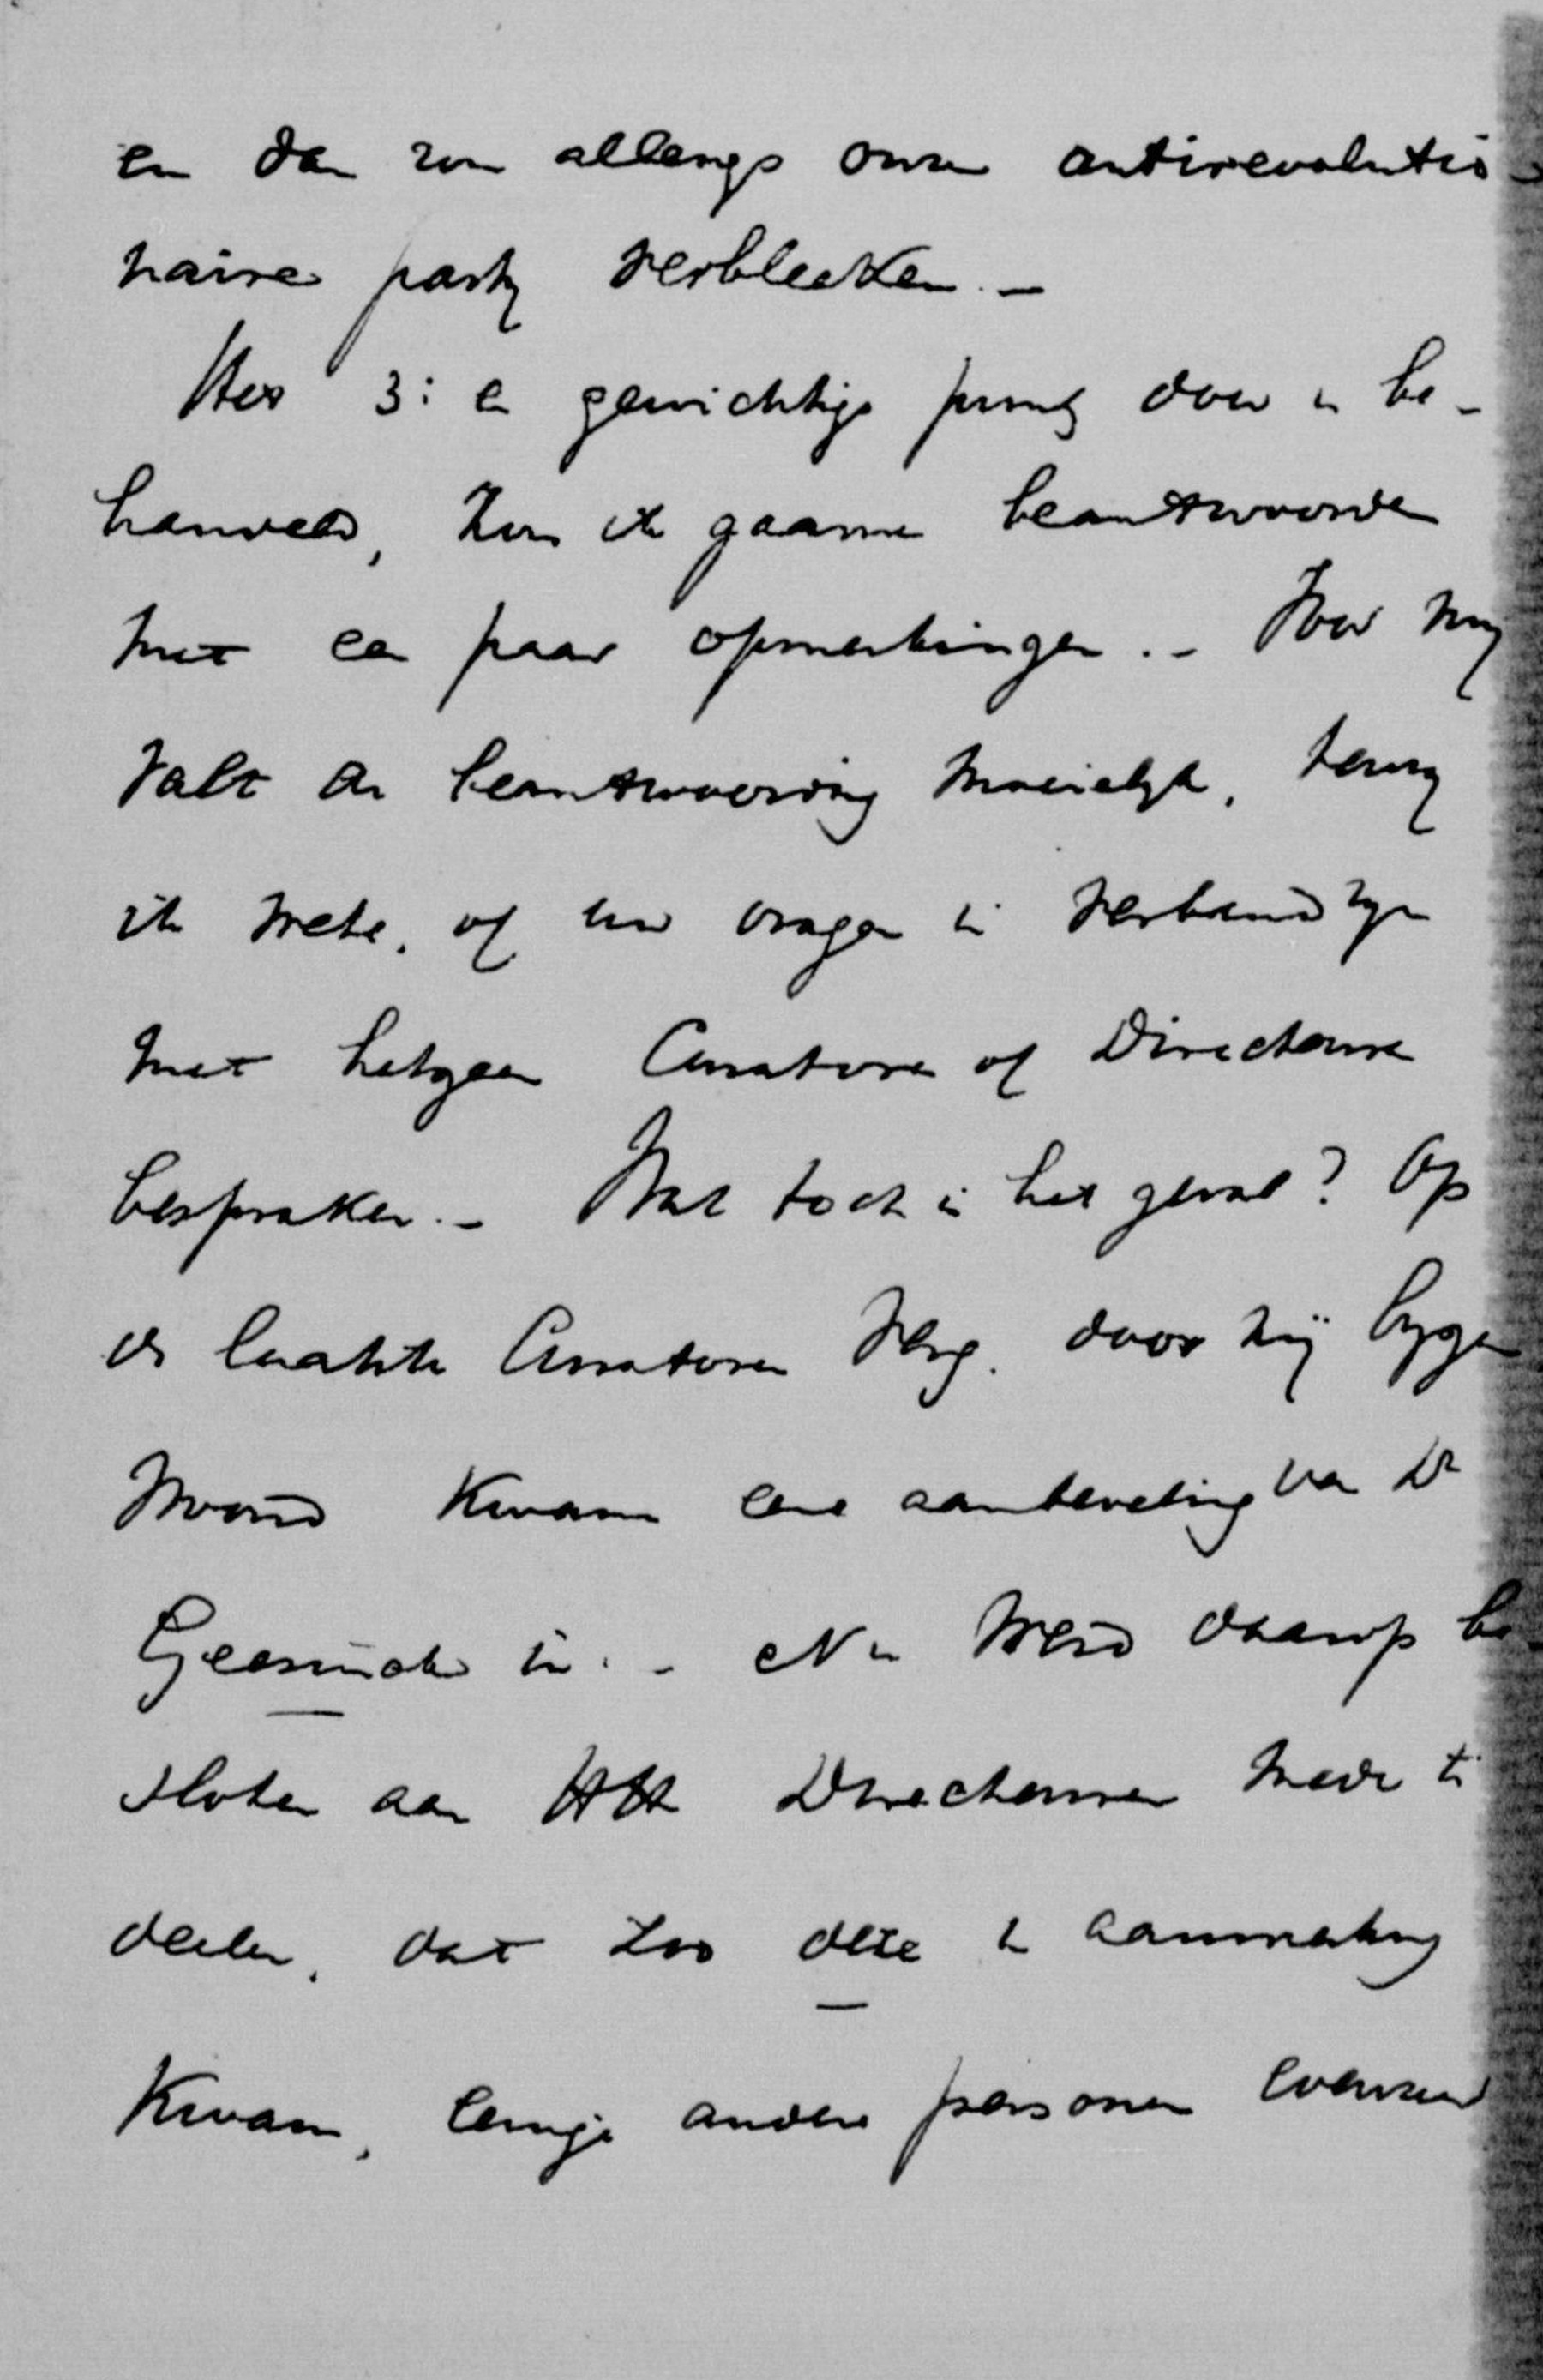 en dan zou allengs onze antirevolutio-
naire party verbleeken. -
Het 3e: en gewichtige punt door u be-
handeld, zou ik gaarne beantwoorden
met een paar opmerkingen. - Voor my
valt de beantwoording moeielyk, tenzy
ik wete, of uw vragen in verband zyn
met hetgeen Curatoren of Directeuren
bespraken. - Wat toch is het geval? Op
de laatste Curatoren Verg. door mij byge
woond kwam eene aanbeveling van Dr
Geesink in. - Nu werd daarop be-
sloten aan HH Directeuren mede te
deelen, dat zoo deze in aanmerking
kwam, eenige andere personen evenzeer